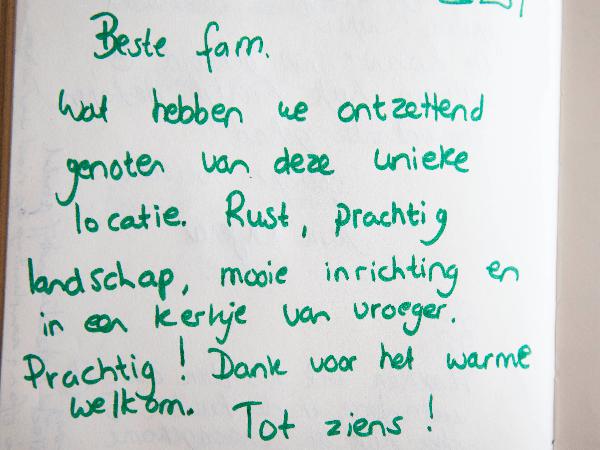 Beste fam.
Wat hebben we ontzettend
genoten van deze unieke
locatie. Rust, prachtig
landschap, mooie inrichting en
in een kerkje van vroeger.
Prachtig! Dank voor het warme
welkom. Tot ziens!